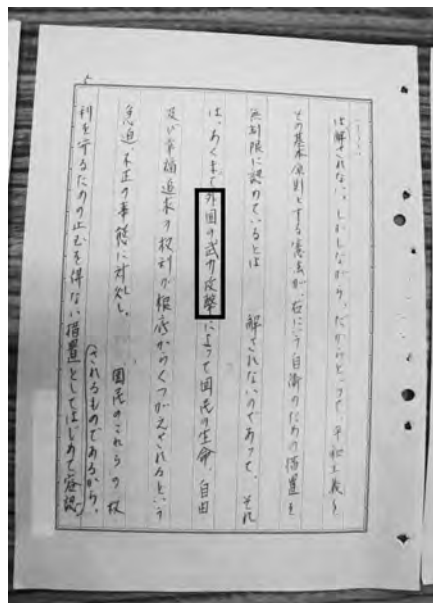 は解されない。しかしながら、だからといって、平和主義を
その基本原則とする憲法が、右にいう自衛のための措置を
無制限に認めているとは解されないのであって、それ
は、あくまで外国の武力攻撃によって国民の生命、自由
及び幸福追求の権利が根底からくつがえされるという
急迫、不正の事態に対処し、国民のこれらの权
利を守るための止むを得ない措置としてはじめて容認
されるものであるから、